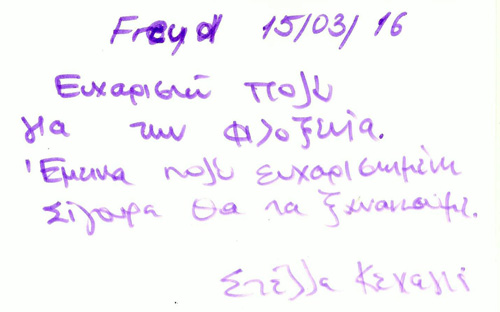 Freyd 15/03/16
Ευχαριστώ πολυ
για την φιλοξενία.
Έμεινα πολυ ευχαριστημένη
Σίγουρα θα τα ξανακούμε.
Στέλλα